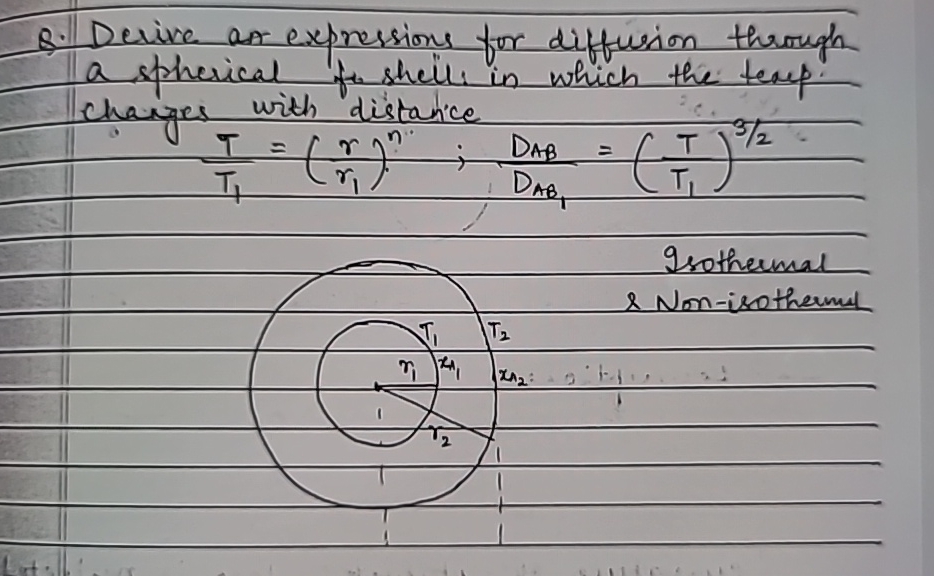 Q. Derive an expressions for diffusion through
a spherical shell in which the temp.
changes with distance
T/T₁ = (r/r₁)ⁿ ; D_AB/D_AB₁ = (T/T₁)^3/2
Isothermal
& Non-isothermal
T₁ T₂
r₁ x_A₁ x_A₂
r₂